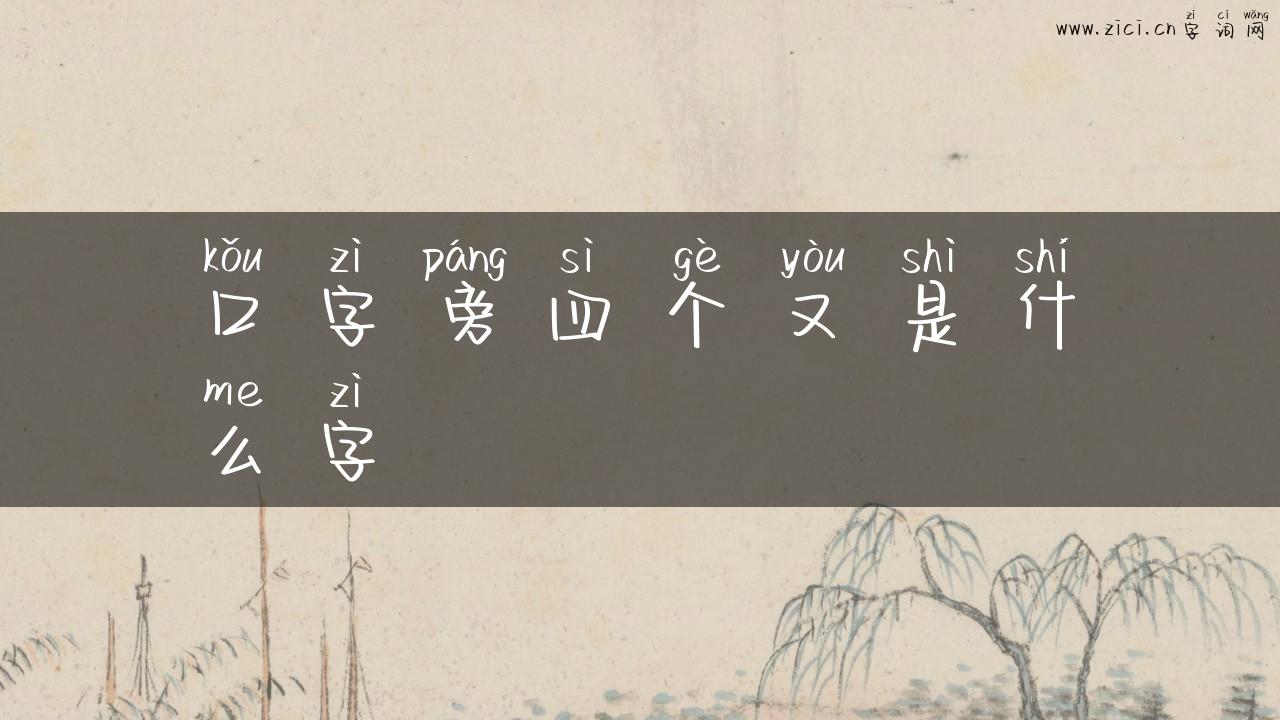 zì cí wǎng
www.zici.cn 字 词 网
kǒu zì páng sì gè yòu shì shí
口 字 旁 四 个 又 是 什
me zì
么 字